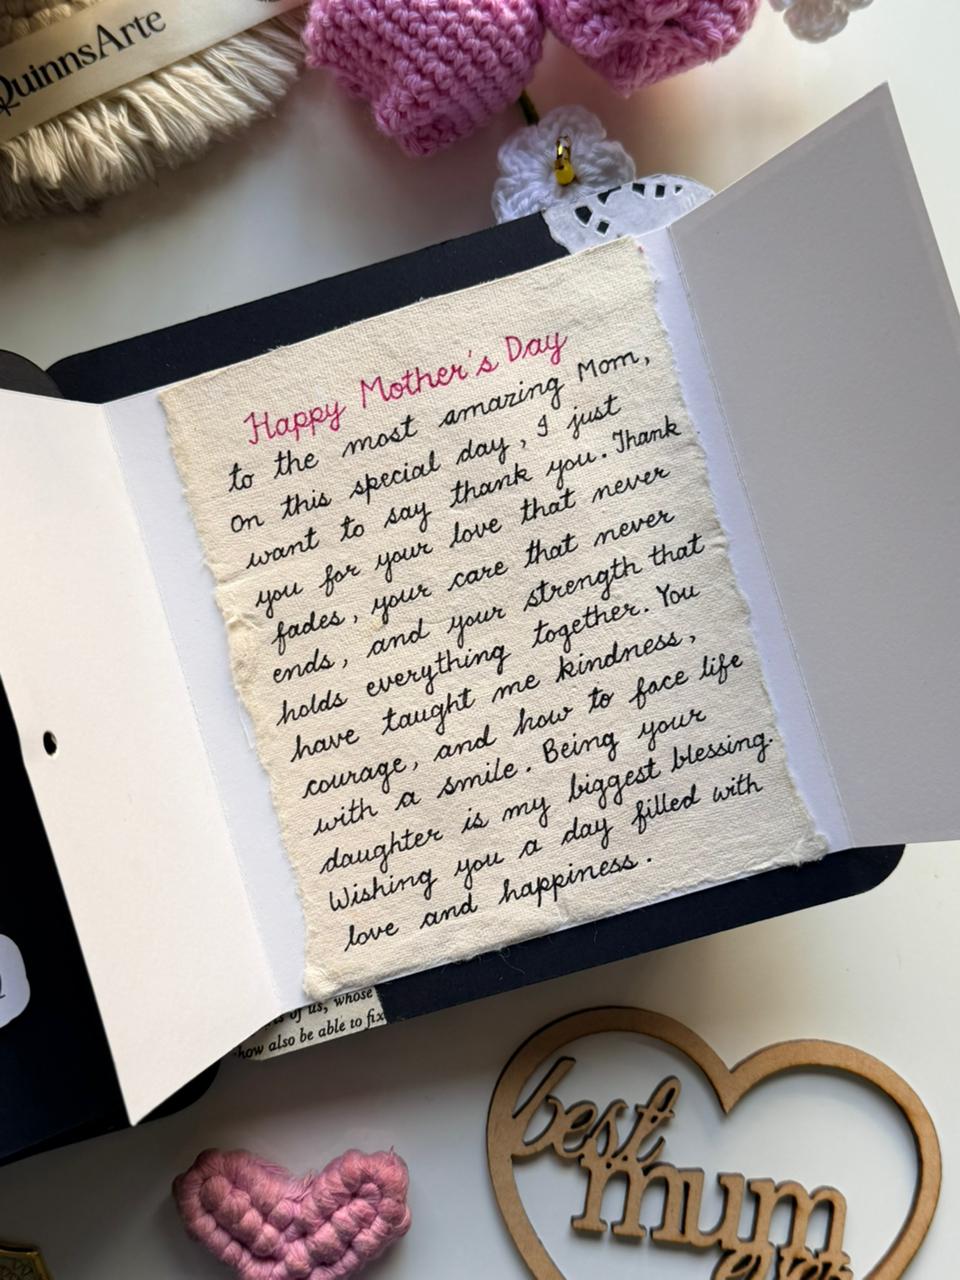 QuinnsArte
Happy Mother's Day
to the most amazing Mom,
On this special day, I just
want to say thank you. Thank
you for your love that never
fades, your care that never
ends, and your strength that
holds everything together. You
have taught me kindness,
courage, and how to face life
with a smile. Being your
daughter is my biggest blessing.
Wishing you a day filled with
love and happiness.
of us, whose
how also be able to fix
best
mum
ever